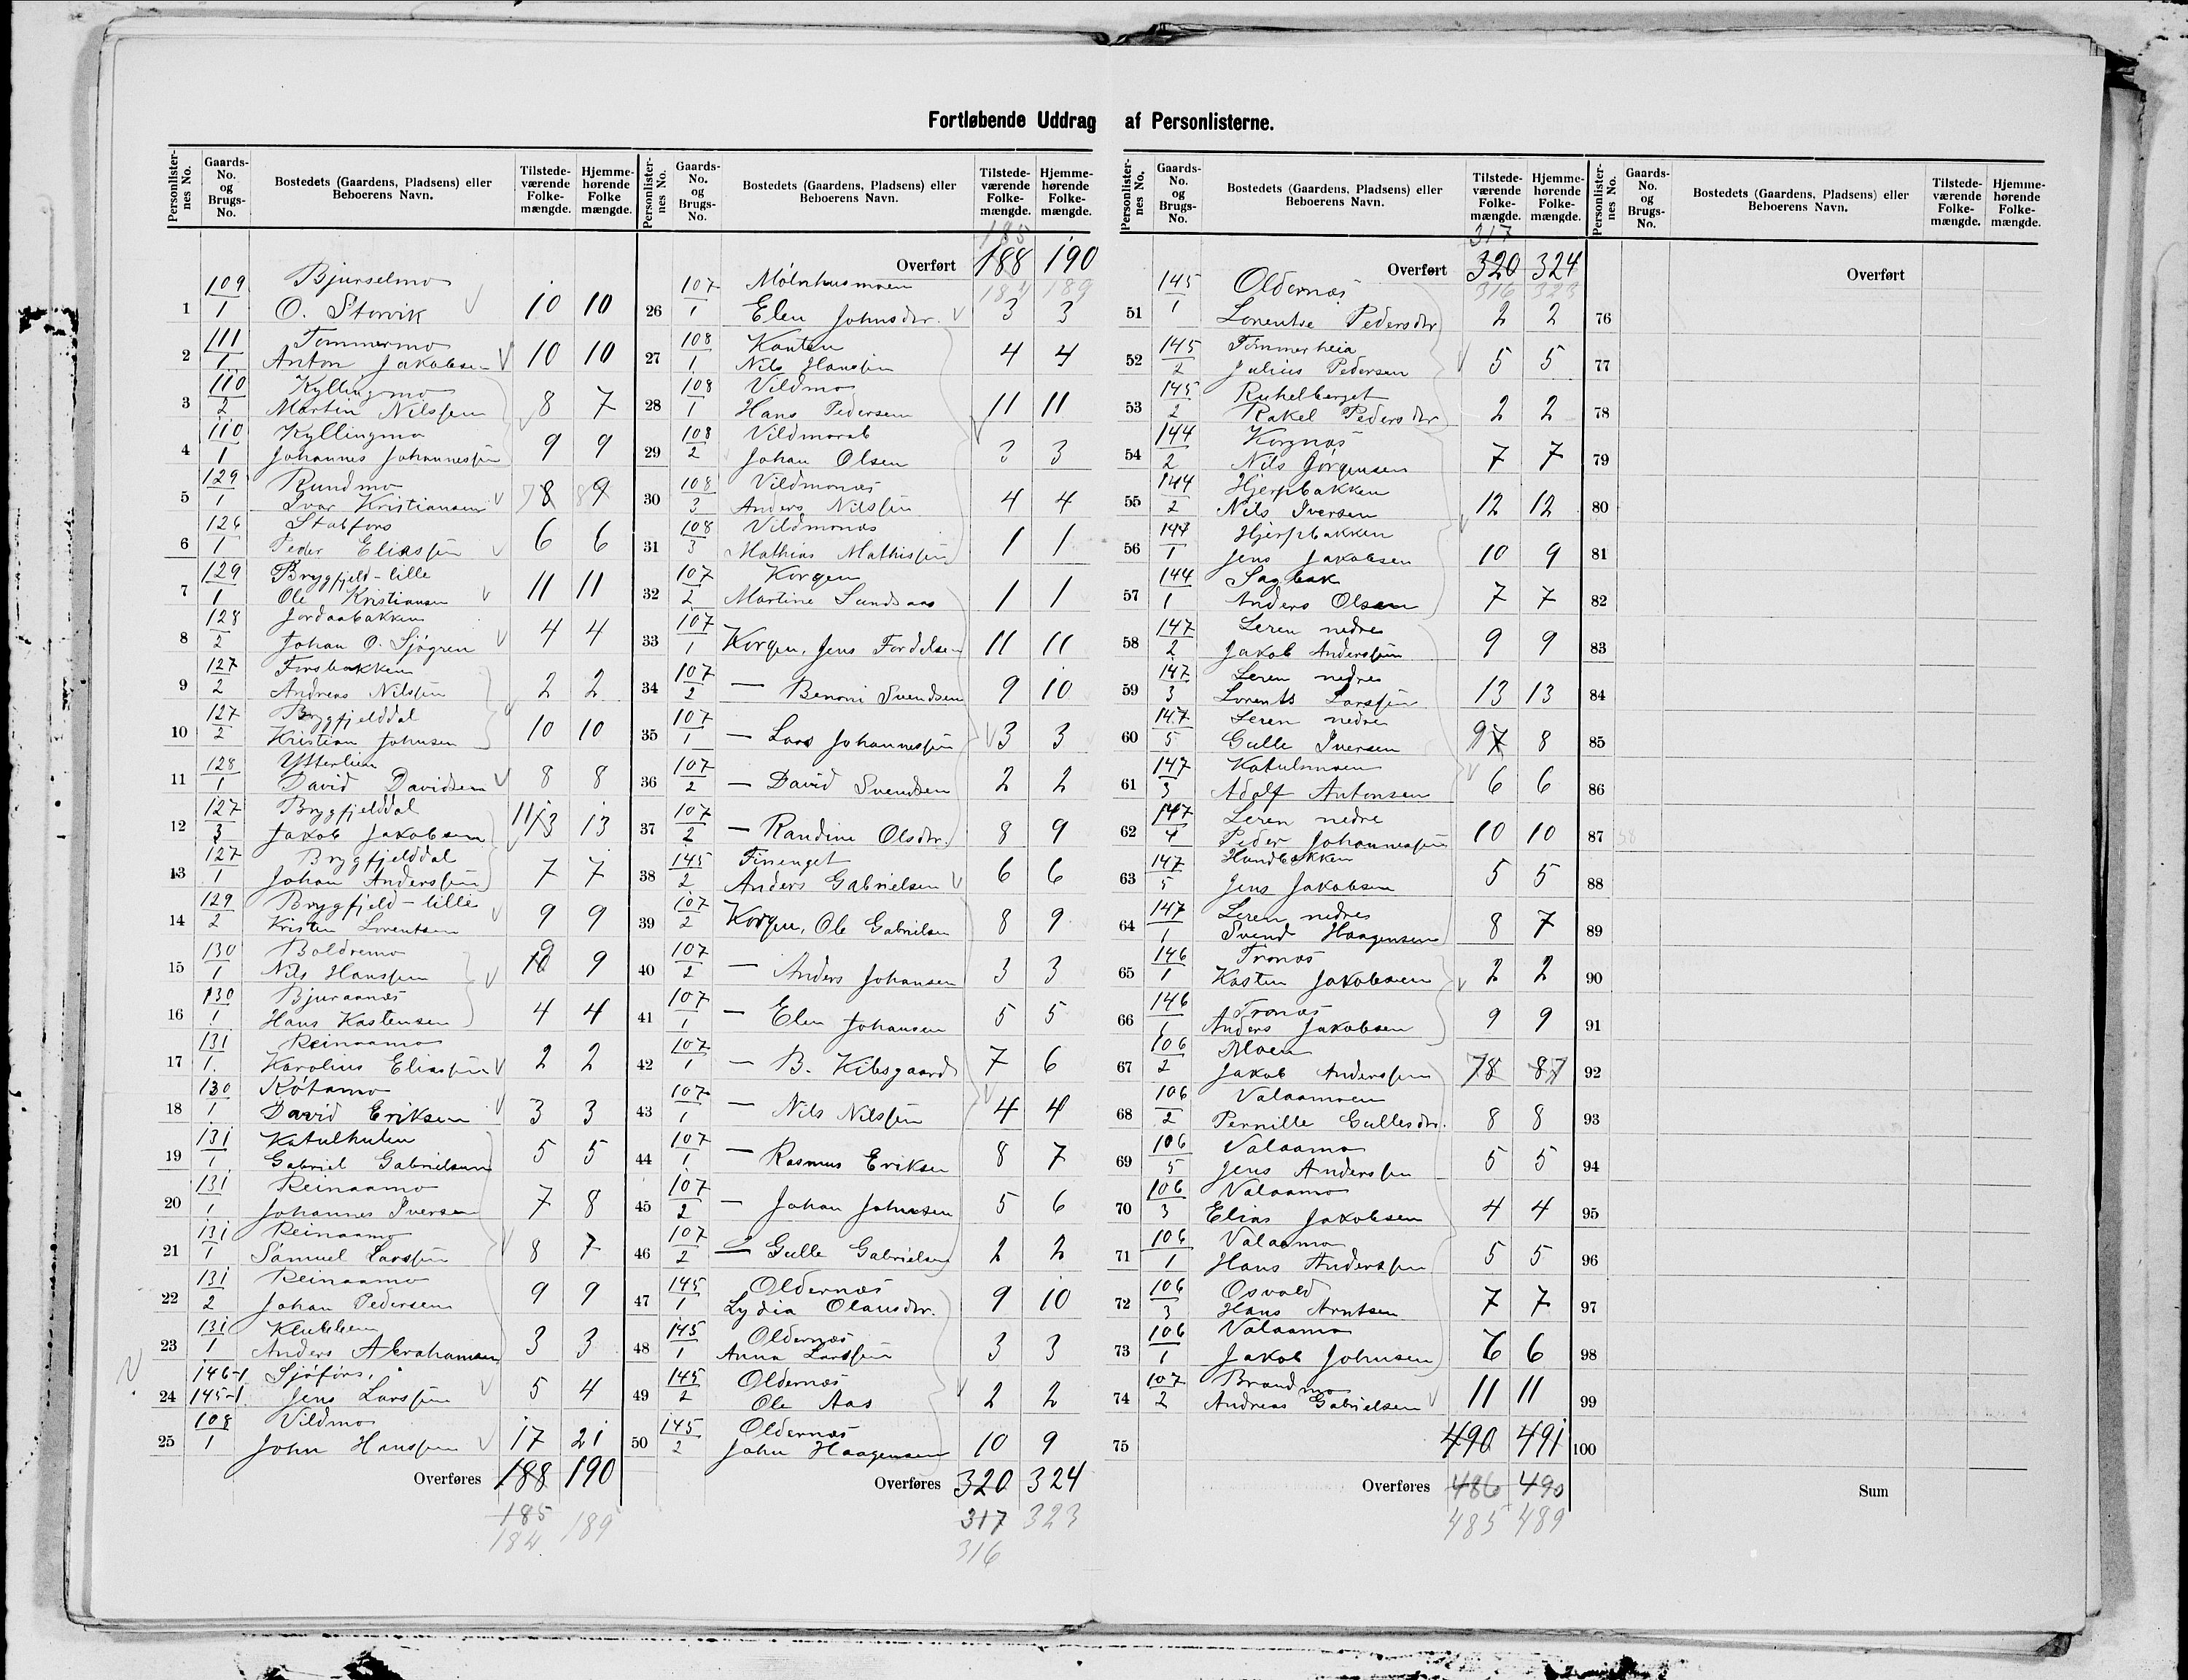 Fortløbende Uddrag af Personlisterne.
Personlister-nes No. Gaards-No. og Brugs-No. Bostedets (Gaardens, Pladsens) eller Beboerens Navn. Tilstede-værende Folke-mængde. Hjemme-hørende Folke mængde.
109/1 Bjurselmo
1 O. Storvik 10 10
111/1 Tømmermo
2 Anton Jakobsen 10 10
110/2 Kyllingmo
3 Martin Nilssen 8 7
110/1 Kyllingmo
4 Johannes Johannessen 9 9
129/1 Rundmo
5 Ivar Kristiansen 78 89
126/1 Stabfors
6 Peder Eliassen 6 6
129/1 Brygfjeld-lille
7 Ole Kristiansen 11 11
128/2 Jordaabakken
8 Johan O. Sjøgren 4 4
127/2 Forsbakken
9 Andreas Nilssen 2 2
127/2 Brygfjelddal
10 Kristian Johnsen 10 10
128/1 Ytterlien
11 David Davidsen 8 8
127/3 Brygfjelddal
12 Jakob Jakobsen 11 13 13
127/1 Brygfjelddal
13 Johan Anderssen 7 7
129/2 Brygfjeld-lille
14 Kristen Lorentsen 9 9
130/1 Boldremo
15 Nils Hanssen 10 9
130/1 Bjuraanæs
16 Hans Kastensen 4 4
131/1 Reinaamo
17 Karolius Eliassen 2 2
130/1 Røtamo
18 David Eriksen 3 3
131/1 Katulhulen
19 Gabriel Gabrielsen 5 5
131/1 Reinaamo
20 Johannes Iversen 7 8
131/1 Reinaamo
21 Samuel Larssen 8 7
131/2 Reinaamo
22 Johan Pedersen 9 9
131/1 Klubben
23 Anders Abrahamsen 3 3
146-1 Sjøfors.
24 145-1 Jens Larssen 5 4
108/1 Vildmo
25 John Hanssen 17 21
Overføres 188 190
185
184 189
Personlister-nes No. Gaards-No. og Brugs-No. Bostedets (Gaardens, Pladsens) eller Beboerens Navn. Tilstede-værende Folke-mængde. Hjemme-hørende Folke-mængde.
185
Overført 188 190
184 189
107/1 Mølnhusmoen
26 Elen Johnsdtr. 3 3
108/1 Kanten
27 Nils Hanssen 4 4
108/1 Vildmo
28 Hans Pedersen 11 11
108/2 Vildmorab
29 Johan Olsen 3 3
108/3 Vildmonæs
30 Anders Nilssen 4 4
108/3 Vildmonæs
31 Mathias Mathissen 1 1
107/2 Korgen
32 Martine Sundsaas 1 1
107/1
33 Korgen, Jens Fordelsen 11 11
107/2
34 — Benoni Svendsen 9 10
107/1
35 — Lars Johannessen 3 3
107/2
36 — David Svendsen 2 2
107/2
37 — Randine Olsdtr. 8 9
145/2 Finenget
38 Anders Gabrielsen 6 6
107/2
39 Korgen, Ole Gabrielsen 8 9
107/2
40 — Anders Johansen 3 3
107/1
41 — Elen Johansen 5 5
107/1
42 — B. Kibsgaard 7 6
107/1
43 — Nils Nilssen 4 4
107/1
44 — Rasmus Eriksen 8 7
107/2
45 — Johan Johnsen 5 6
107/2
46 — Gulle Gabrielsen 2 2
145/1 Oldernæs
47 Lydia Olausdtr. 9 10
145/1 Oldernæs
48 Anna Larssen 3 3
145/2 Oldernæs
49 Ole Aas 2 2
145/2 Oldernæs
50 John Haagensen 10 9
Overføres 320 324
317 323
316
Personlister-nes No. Gaards-No. og Brugs-No. Bostedets (Gaardens, Pladsens) eller Beboerens Navn. Tilstede-værende Folke-mængde. Hjemme-hørende Folke-mængde.
317
Overført 320 324
316 323
145/1 Oldernæs
51 Lorentse Pedersdtr 2 2
145/2 Tømmerheia
52 Julius Pedersen 5 5
145/2 Ruhelberget
53 Rakel Pedersdtr 2 2
144/2 Korgnæs
54 Nils Jørgensen 7 7
144/2 Hjerpbakken
55 Nils Iversen 12 12
144/1 Hjerpbakken
56 Jens Jakobsen 10 9
144/1 Sagbak
57 Anders Olsen 7 7
147/2 Leren nedre
58 Jakob Anderssen 9 9
147/3 Leren nedre
59 Lorents Larssen 13 13
147/5 Leren nedre
60 Gulle Iversen 97 8
147/3 Katulsmoen
61 Adolf Antonsen 6 6
147/4 Leren nedre
62 Peder Johannessen 10 10
147/5 Hundbakken
63 Jens Jakobsen 5 5
147/1 Leren nedre
64 Svend Haagensen 8 7
146/1 Tronæs
65 Kasten Jakobsen 2 2
146/1 Tronæs
66 Anders Jakobsen 9 9
106/2 Moen
67 Jakob Anderssen 78 87
106/2 Valaamoen
68 Pernille Gullesdtr. 8 8
106/5 Valaamo
69 Jens Anderssen 5 5
106/3 Valaamo
70 Elias Jakobsen 4 4
106/1 Valaamo
71 Hans Anderssen 5 5
106/3 Osvold
72 Hans Arntsen 7 7
106/1 Valaamo
73 Jakob Johnsen 6 6
107/2 Brandmo
74 Andreas Gabrielsen 11 11
75 490 491
Overføres 486 490
485 489
Personlister-nes No. Gaards-No. og Brugs-No. Bostedets (Gaardens, Pladsens) eller Beboerens Navn. Tilstede-værende Folke-mængde. Hjemme-hørende Folke-mængde.
Overført
76
77
78
79
80
81
82
83
84
85
86
87
88
89
90
91
92
93
94
95
96
97
98
99
100
Sum